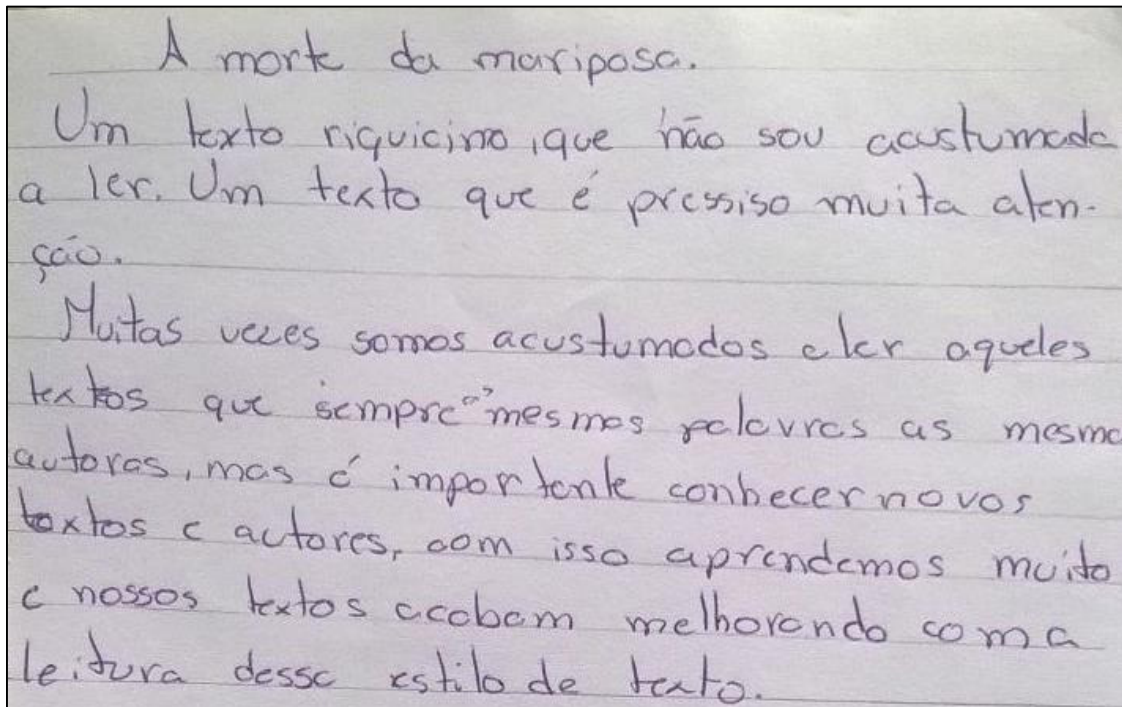 A morte da mariposa.
Um texto riquicimo, que não sou acustumada
a ler. Um texto que é pressiso muita aten-
ção.
Muitas vezes somos acustumados a ler aqueles
textos que sempre as mesmas palavras as mesma
autoras, mas é importante conhecer novos
textos e actores, com isso aprendemos muito
e nossos textos acabam melhorando com a
leitura desse estilo de texto.